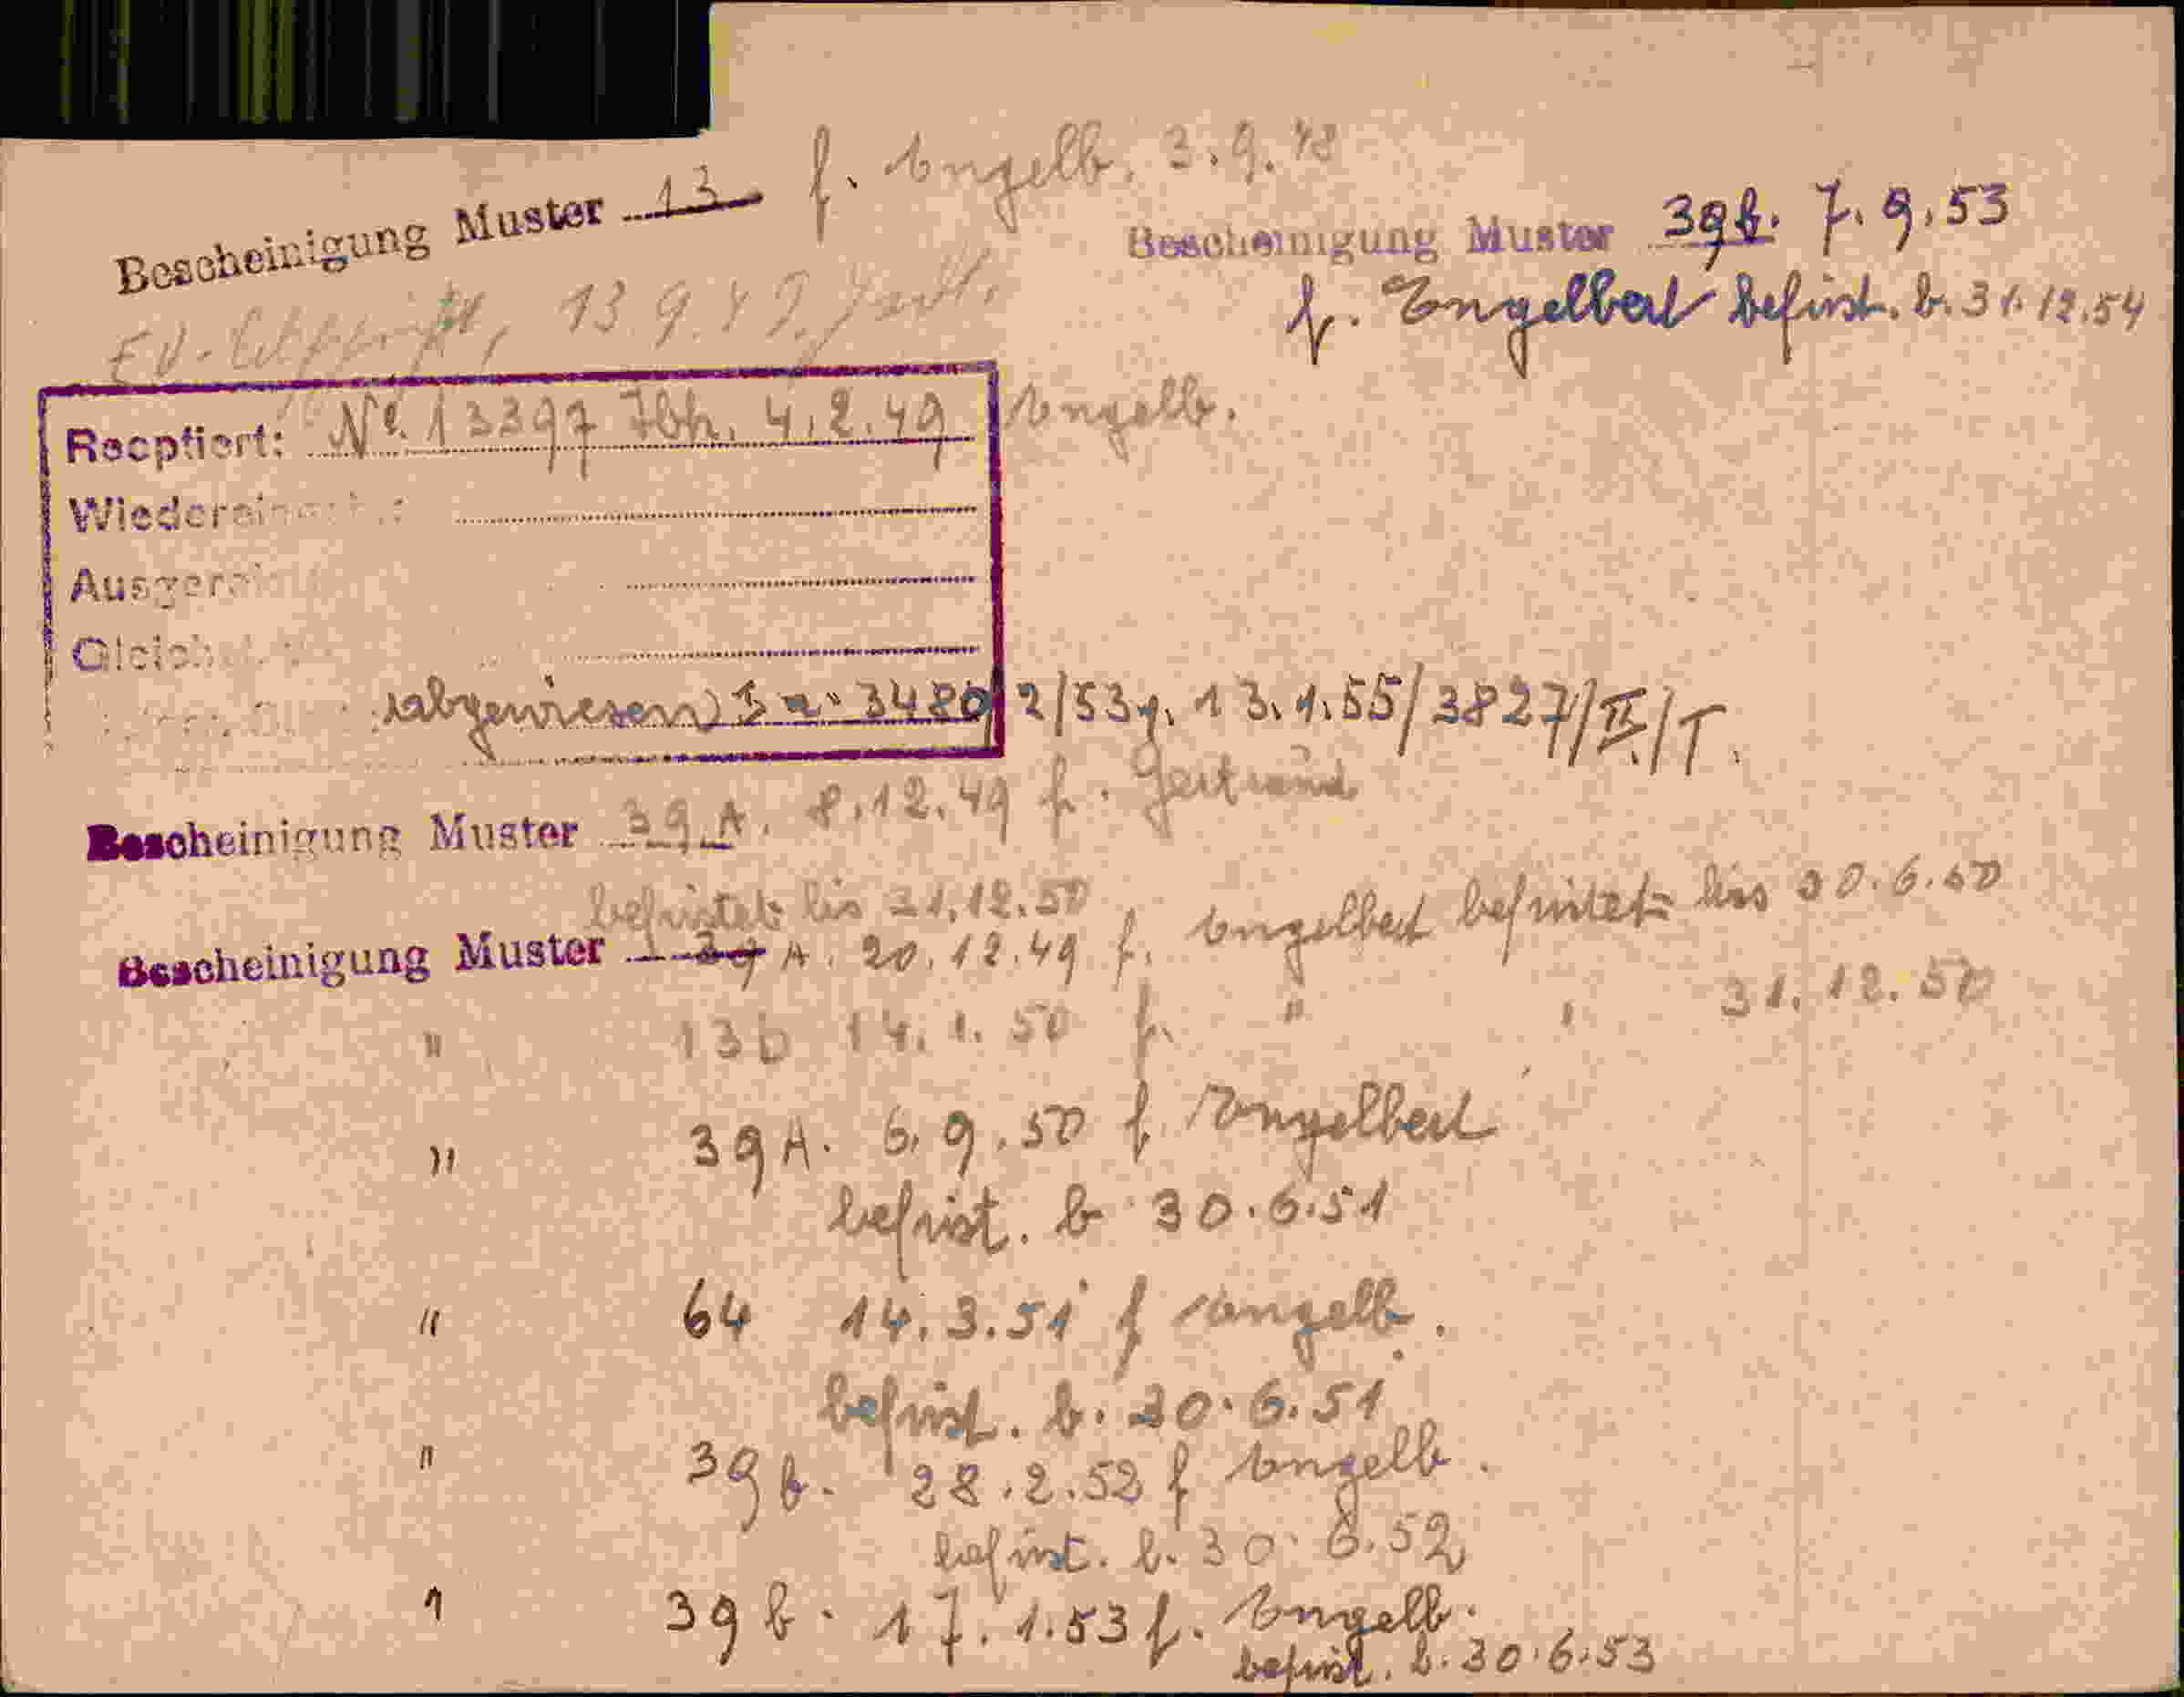 Bescheinigung Muster 13 f. Engelb. 3.9.48
Bescheinigung Muster 39b. 7.9.53
f. Engelbert befrist. b. 31.12.54
13.9.49.
Engelb.
Recptiert: No. 13397 4.2.49
abgewiesen 3480 2/53 13.1.55/3827/II/T.
Bescheinigung Muster 39A. 8.12.49 f. Gertraud
befristet bis 31.12.50
Bescheinigung Muster 39 A. 20.12.49 f. Engelbert befristet bis 30.6.50
" 13b 14.1.50 f. " " 31.12.50
" 39A. 6.9.50 f. Engelbert
befrist. b 30.6.51
" 64 14.3.51 f Engelb.
befrist. b. 30.6.51
" 39b. 28.2.52 f Engelb.
befrist. b. 30.6.52
" 39b. 17.1.53 f. Engelb.
befrist. b. 30.6.53